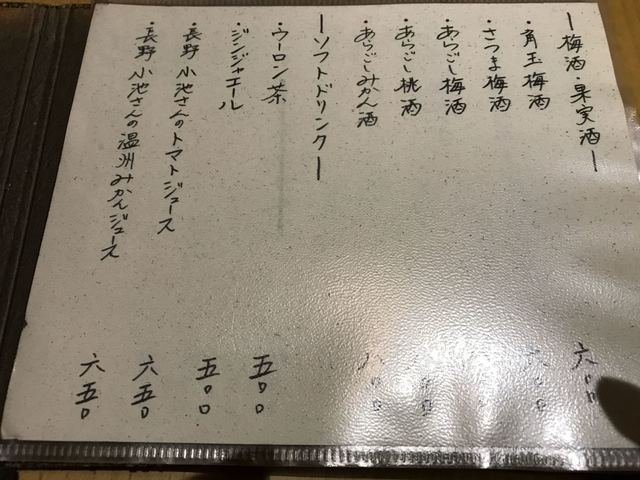 ー梅酒・果実酒ー
・角玉梅酒
・さつま梅酒
・あらごし梅酒
・あらごし桃酒
・あらごしみかん酒
ーソフトドリンクー
・ウーロン茶
・ジンジャエール
・長野 小池さんのトマトジュース
・長野 小池さんの温州みかんジュース
六〇〇
六〇〇
五〇〇
五〇〇
六五〇
六五〇